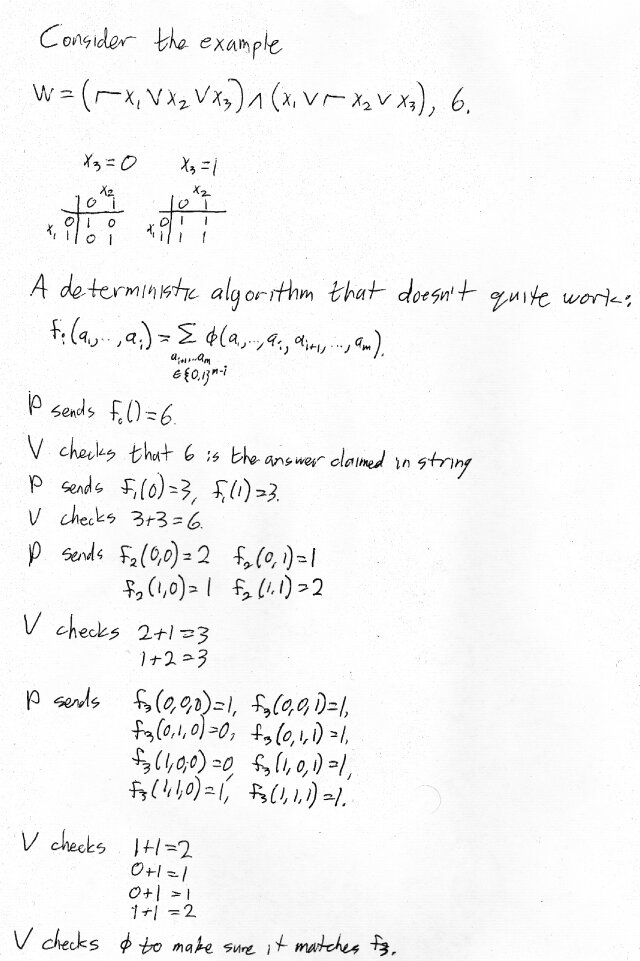 Consider the example
W = (¬x₁ ∨ x₂ ∨ x₃) ∧ (x₁ ∨ ¬x₂ ∨ x₃), 6.
x₃=0 x₃=1
x₂ x₂
0 1 0 1
x₁ 0 1 0 x₁ 0 1 1
1 0 1 1 1 1
A deterministic algorithm that doesn't quite work:
fᵢ(a₁,..,aᵢ) = Σ ϕ(a₁,..,aᵢ, aᵢ₊₁, ..., aₘ).
aᵢ₊₁,..aₘ
∈{0,1}ᵐ⁻ⁱ
P sends f₀()=6.
V checks that 6 is the answer claimed in string
P sends f₁(0)=3, f₁(1)=3.
V checks 3+3=6.
P sends f₂(0,0)=2 f₂(0,1)=1
f₂(1,0)=1 f₂(1,1)=2
V checks 2+1=3
1+2=3
P sends f₃(0,0,0)=1, f₃(0,0,1)=1,
f₃(0,1,0)=0, f₃(0,1,1)=1,
f₃(1,0,0)=0 f₃(1,0,1)=1,
f₃(1,1,0)=1, f₃(1,1,1)=1.
V checks 1+1=2
0+1=1
0+1=1
1+1=2
V checks ϕ to make sure it matches f₃.